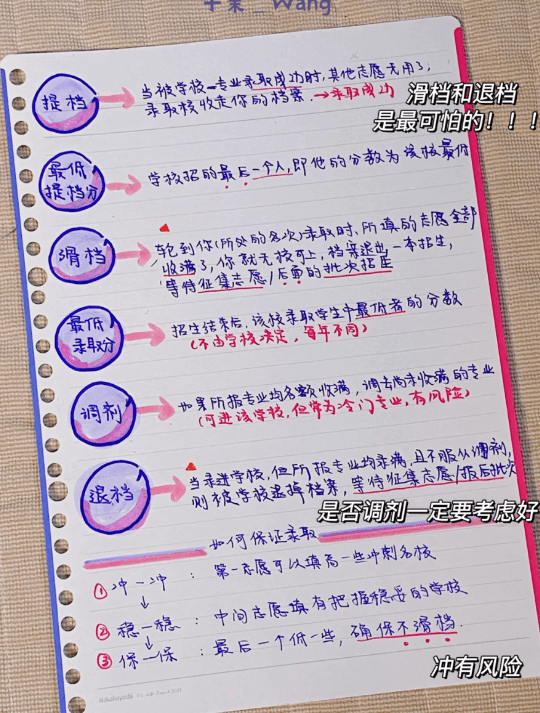 千寻_Wang
提档
当被学校一专业录取成功时,其他志愿无用了,
录取校收走你的档案.→录取成功
滑档和退档
是最可怕的!!!
最低
提档分
学校招的最后一个人,即他的分数为该校最低
滑档
轮到你(所处的名次)录取时,所填的志愿全部
收满了,你就无校可上,档案退出一本招生,
等待征集志愿/后面的批次招生
最低
录取分
招生结束后,该校录取学生中最低者的分数
(不由学校决定,每年不同)
调剂
如果所报专业均名额收满,调去尚未收满的专业
(可进该学校,但常为冷门专业,有风险)
退档
当录进学校,但所报专业均录满,且不服从调剂,
则被学校退掉档案,等待征集志愿/报后批次
是否调剂一定要考虑好
如何保证录取
①冲一冲:第一志愿可以填高一些冲刺名校
↓
②稳一稳:中间志愿填有把握稳妥的学校
↓
③保一保:最后一个低一些,确保不滑档
冲有风险